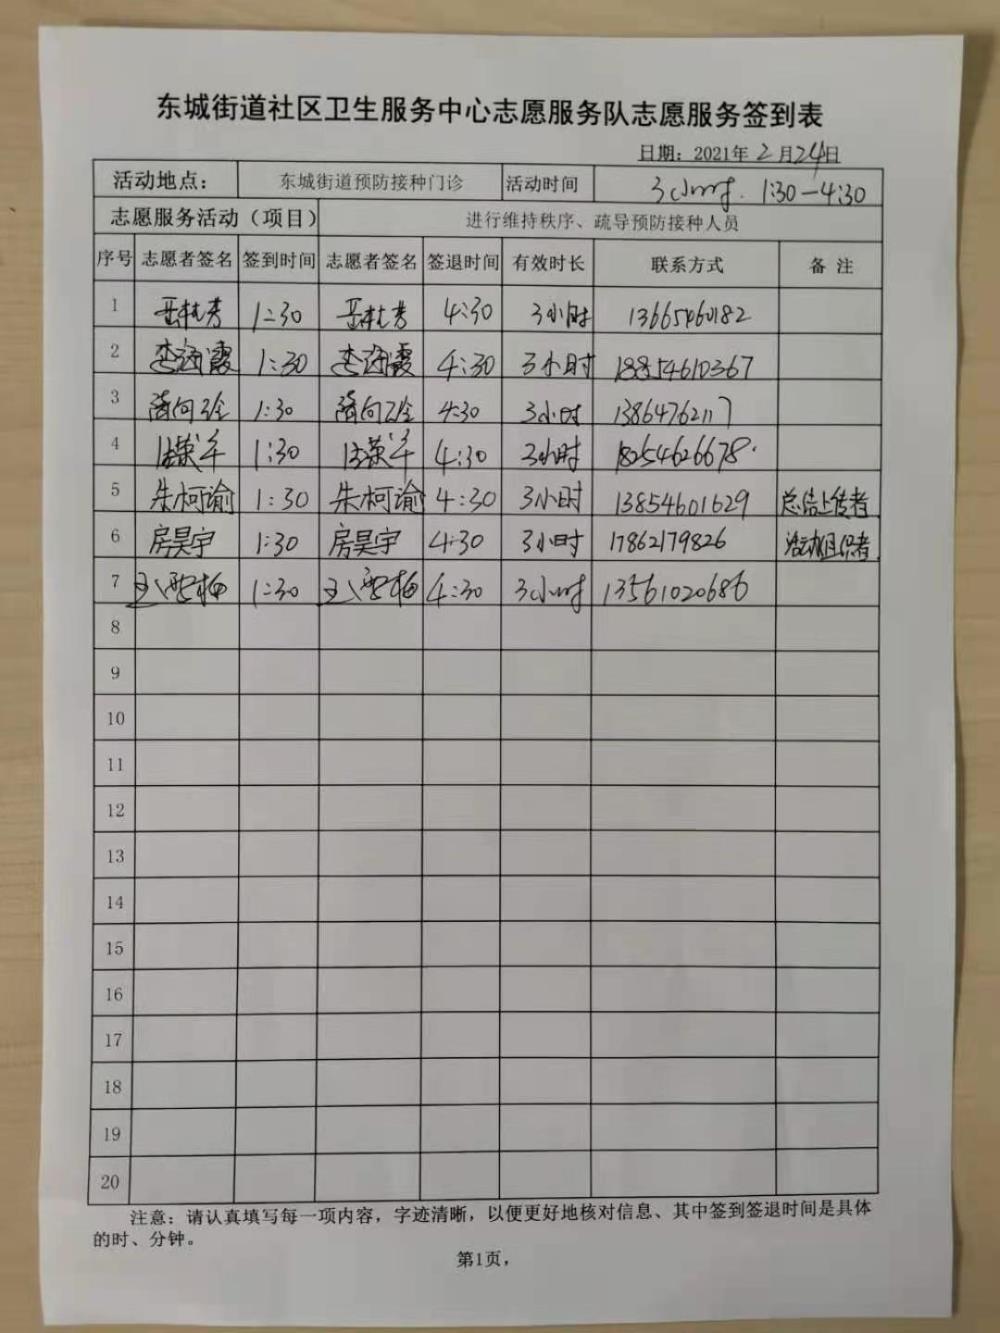 东城街道社区卫生服务中心志愿服务队志愿服务签到表
日期：2021年2月24日
活动地点： 东城街道预防接种门诊 活动时间 3小时. 1:30—4:30
志愿服务活动（项目） 进行维持秩序、疏导预防接种人员
序号 志愿者签名 签到时间 志愿者签名 签退时间 有效时长 联系方式 备 注
1 1:30 4:30 3小时 13665460182
2 李海霞 1:30 李海霞 4:30 3小时 18854610367
3 1:30 4:30 3小时 13864762117
4 1:30 4:30 3小时 18254626678
5 朱柯谕 1:30 朱柯谕 4:30 3小时 13854601629 总结上传者
6 房昊宇 1:30 房昊宇 4:30 3小时 17862179826 活动组织者
7 1:30 4:30 3小时 13561020686
8
9
10
11
12
13
14
15
16
17
18
19
20
注意：请认真填写每一项内容，字迹清晰，以便更好地核对信息、其中签到签退时间是具体
的时、分钟。
第1页，